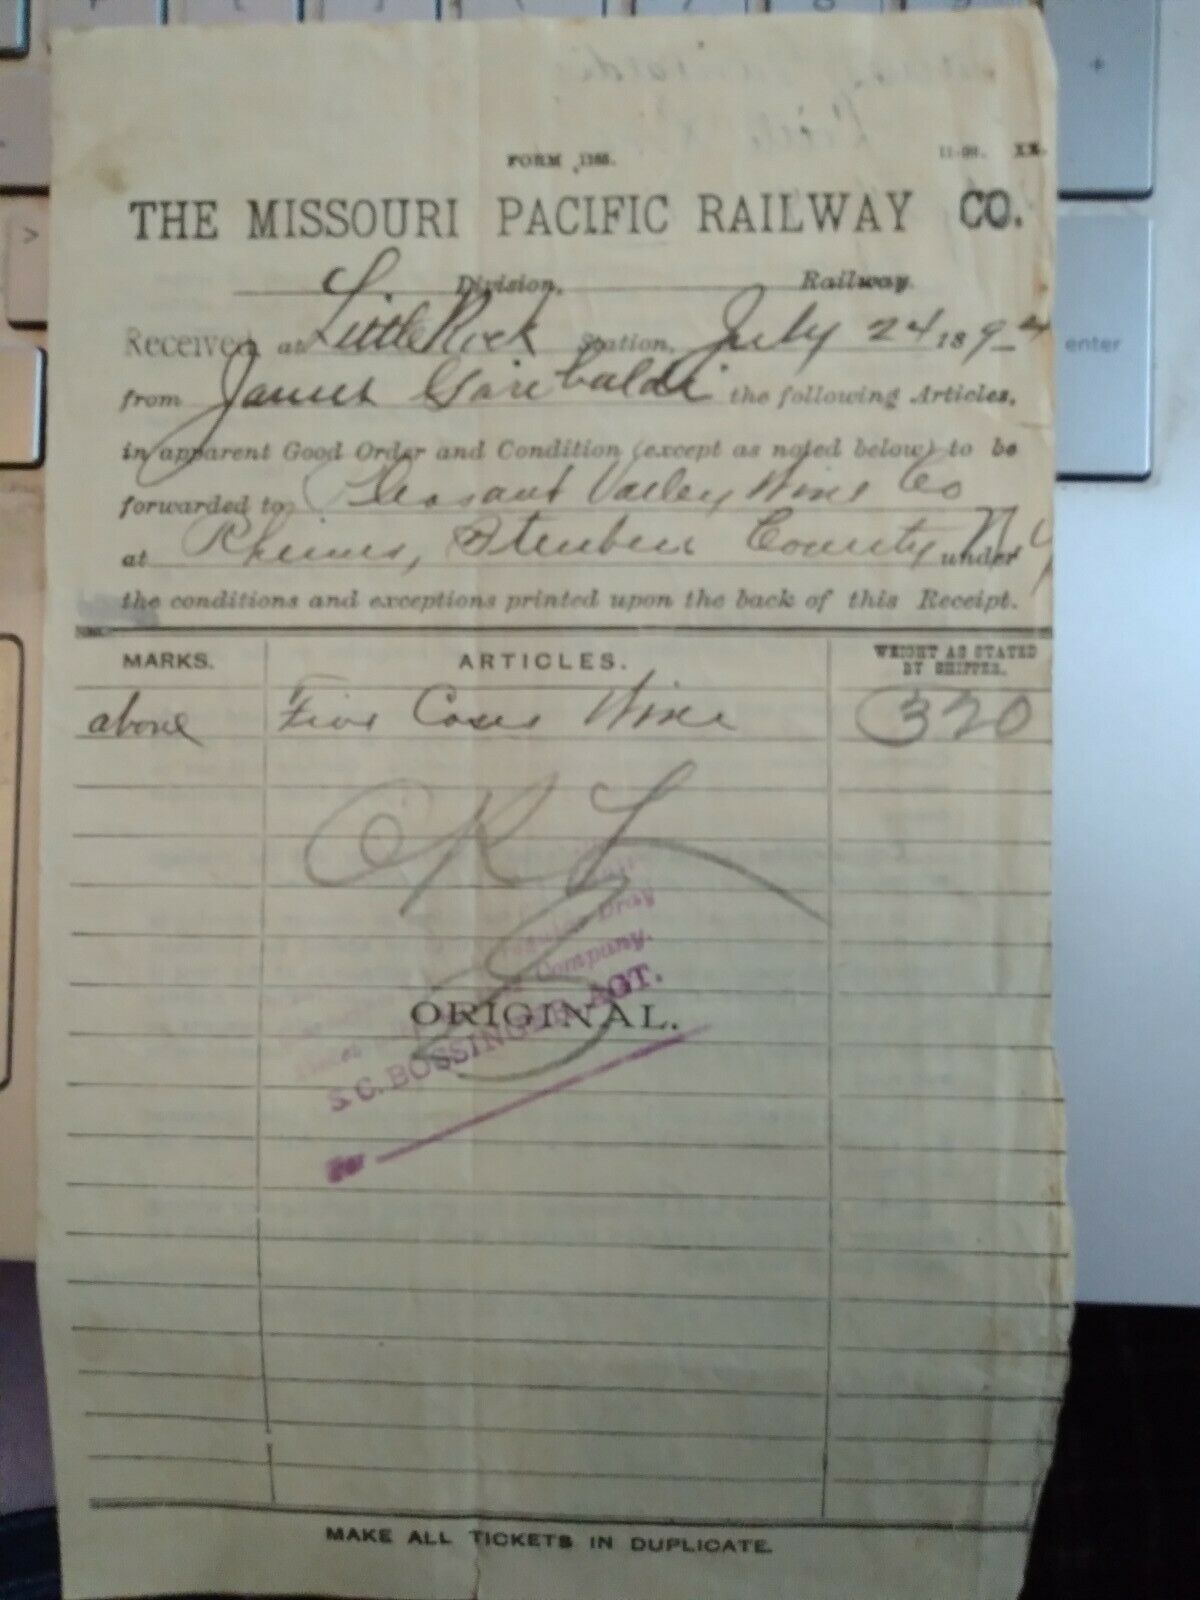 FORM 1166.
THE MISSOURI PACIFIC RAILWAY CO.
Division, Railway.
Received at Little Rock Station, July 24 189
from James Garibaldi the following Articles,
in apparent Good Order and Condition (except as noted below) to be
forwarded to Pleasant Valley Wine Co
at Rheims, Steuben County N Y under
the conditions and exceptions printed upon the back of this Receipt.
MARKS. ARTICLES. WEIGHT AS STATED
BY SHIPPER.
above Five Cases Wine 320
regular Dray
Company.
ORIGINAL.
S. C. BOSSINGER AGT.
Per
MAKE ALL TICKETS IN DUPLICATE.
+
>
enter